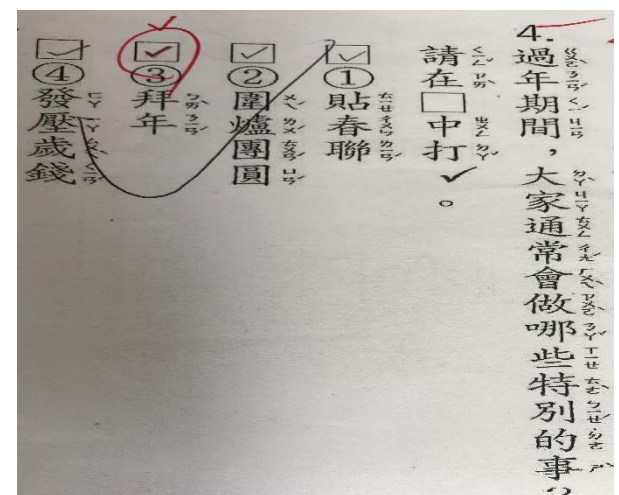 4.過年期間，大家通常會做哪些特別的事？
請在□中打✓。
☑①貼春聯
☑②圍爐團圓
☑③拜年
☑④發壓歲錢